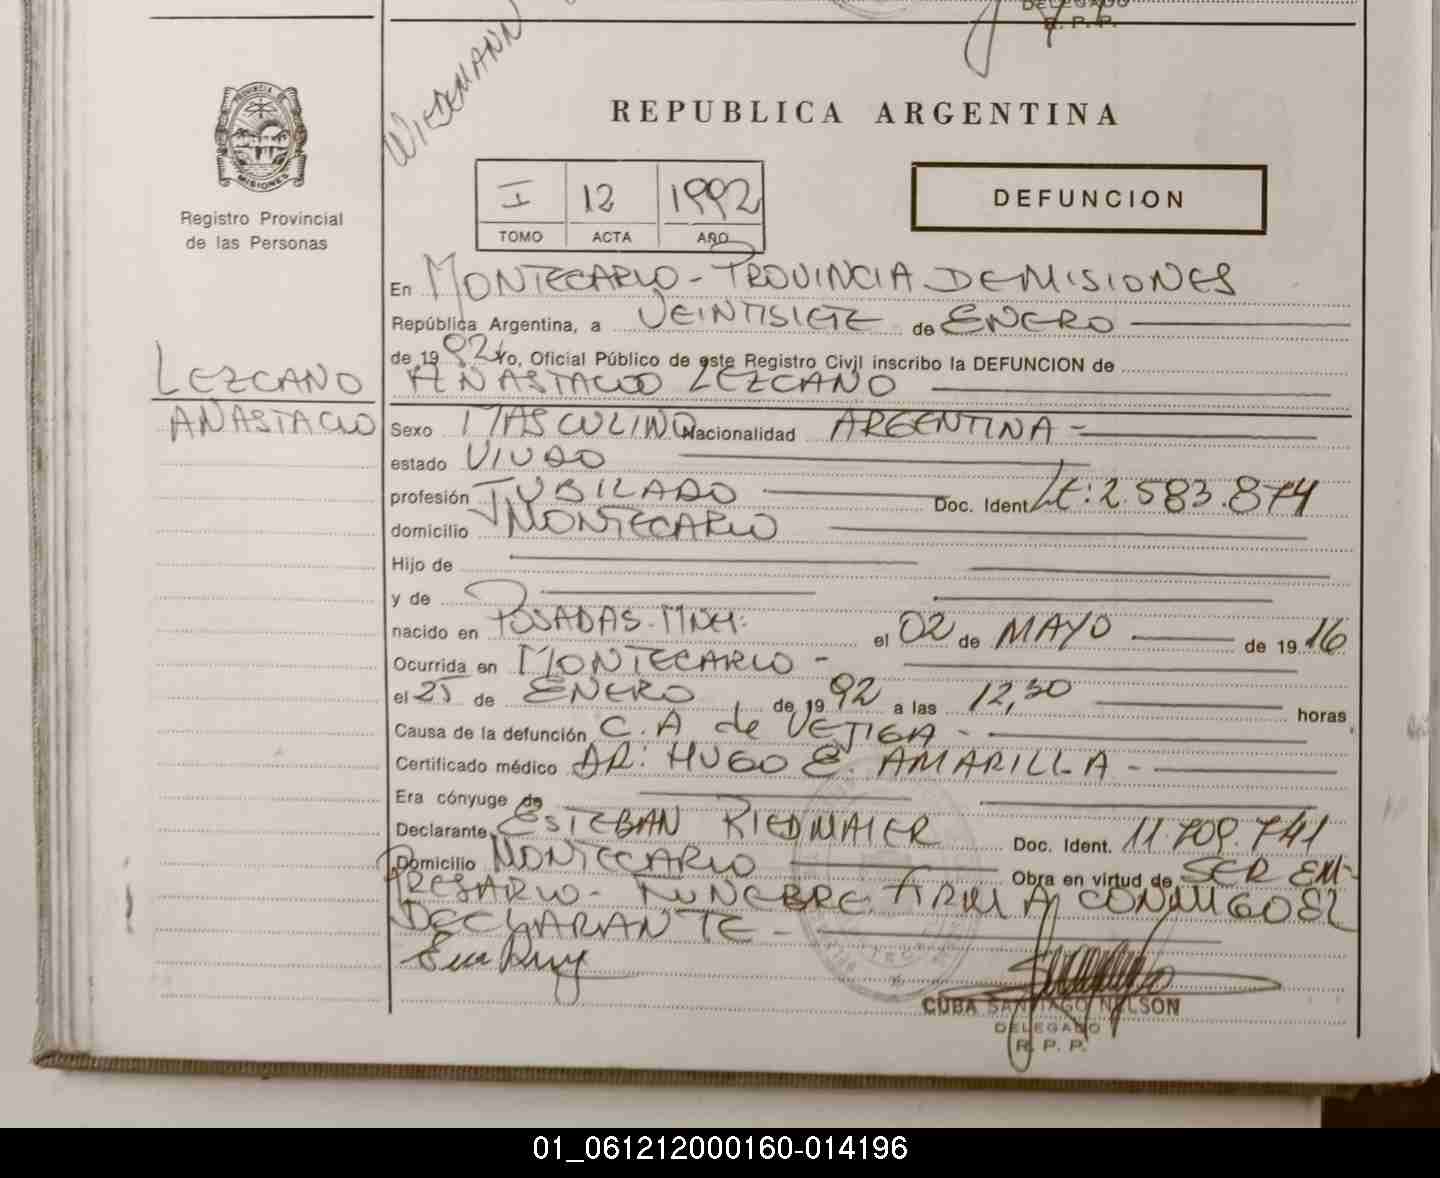 DELEGADO
R. P. P.
WIEDMANN
REPUBLICA ARGENTINA
PROVINCIA DE
MISIONES
Registro Provincial
de las Personas
I 12 1992
TOMO ACTA AÑO
DEFUNCION
En MONTECARLO - PROVINCIA DE MISIONES
República Argentina, a VEINTISIETE de ENERO
de 19 92 Yo, Oficial Público de este Registro Civil inscribo la DEFUNCION de
LEZCANO
ANASTACIO
ANASTACIO LEZCANO
Sexo MASCULINO Nacionalidad ARGENTINA -
estado VIUDO
profesión JUBILADO Doc. Ident. LE: 2.583.874
domicilio MONTECARLO
Hijo de
y de
nacido en POSADAS. MNES. el 02 de MAYO de 19 16
Ocurrida en MONTECARLO -
el 25 de ENERO de 19 92 a las 12,30 horas
Causa de la defunción C.A de VEJIGA -
Certificado médico DR: HUGO E. AMARILLA -
Era cónyuge de
Declarante ESTEBAN RIEDMAIER Doc. Ident. 11.709.741
Domicilio MONTECARLO Obra en virtud de SER EM-
PRESARIO - FUNEBRE. FIRMA CONMIGO EL
DECLARANTE -
CUBA SANTIAGO NELSON
DELEGADO
R. P. P.
01_061212000160-014196